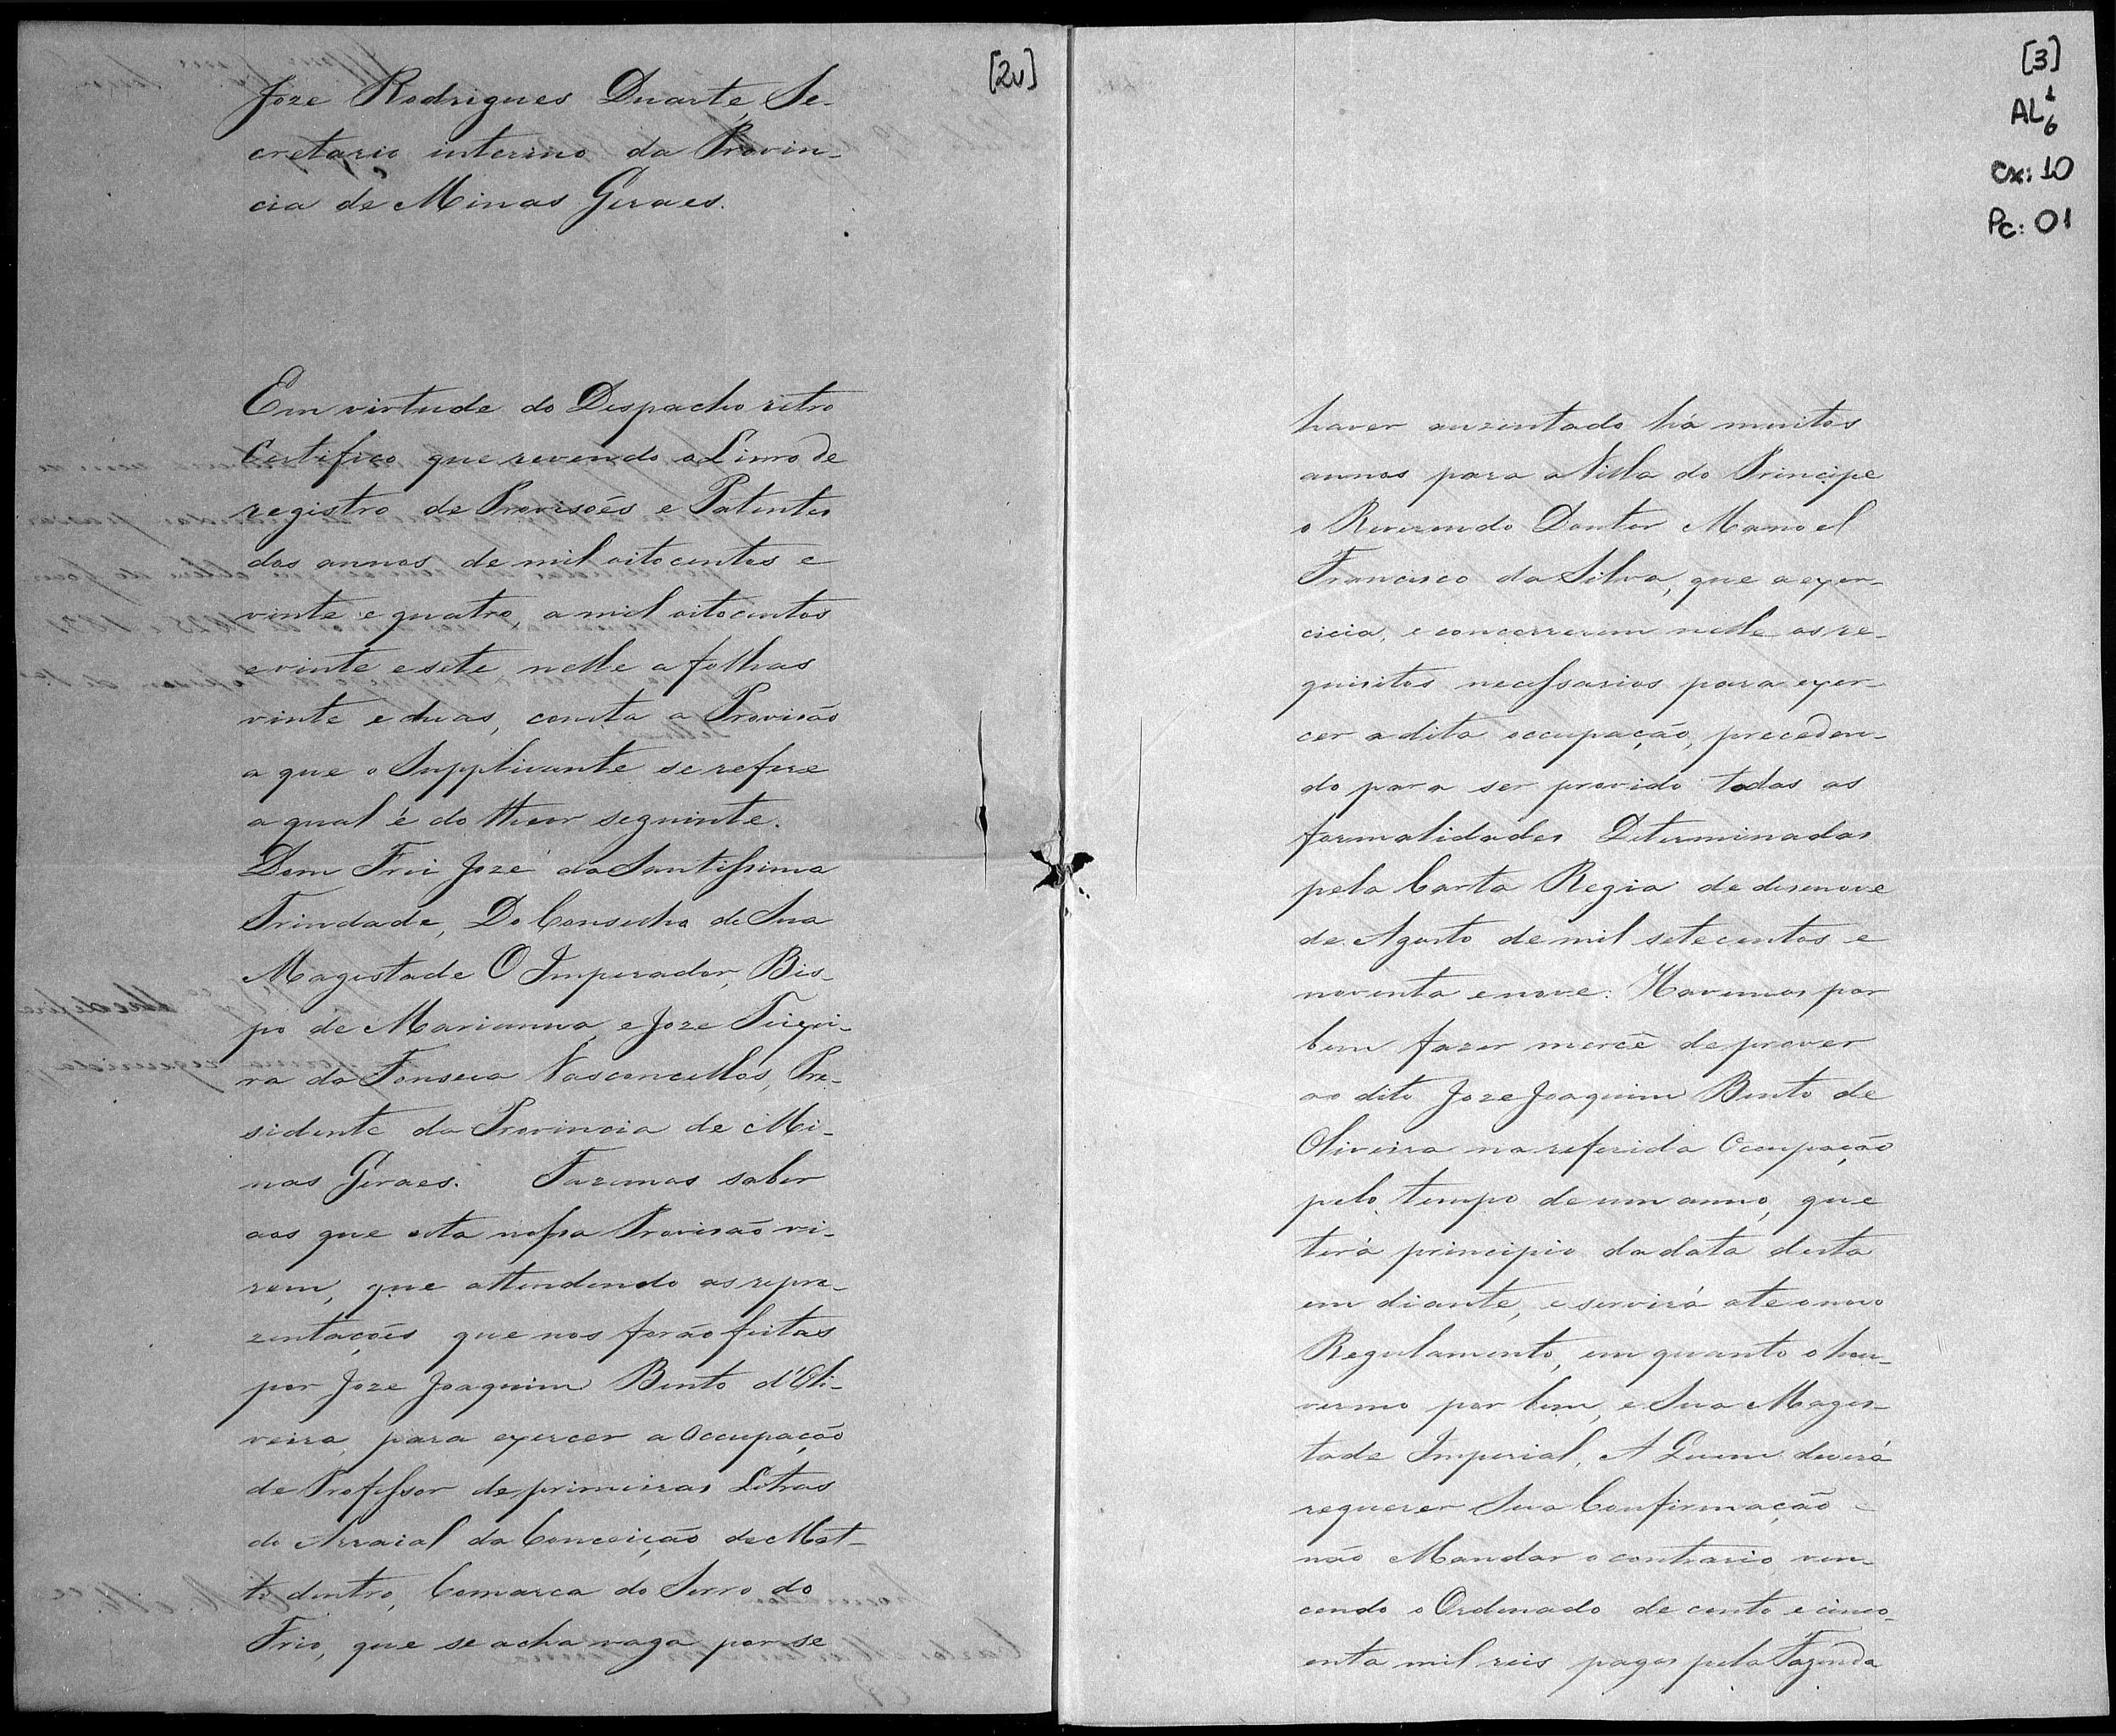 [2v]
Joze Rodrigues Duarte, Se-
cretario interino da Provin-
cia de Minas Geraes.
Em virtude do Despacho retro
Certifico que revendo o Livro de
registro de Provisoẽs e Patentes
dos annos de mil oitocentos e
vinte e quatro, a mil oitocentos
e vinte e sete nelle a folhas
vinte e duas, consta a Provisão
a que o Supplicante se refere
a qual é do theor seguinte.
Dom Frei Jozé da Santissima
Trindade, Do Conselho de Sua
Magestade O Imperador, Bis-
po de Marianna, e Joze Teixei-
ra da Fonseca Vasconcellos, Pre-
sidente da Provincia de Mi-
nas Geraes. Fazemos saber
aos que esta nossa Provisão vi-
rem, que attendendo as repre-
zentações que nos forão feitas
por Joze Joaquim Bento d'Oli-
veira, para exercer a Occupação
de Professor de primeiras Letras
do Arraial da Conceição de Mat-
to dentro, Comarca do Serro do
Frio, que se acha vaga por se
[3]
AL 1 6
Cx: 10
Pc: 01
haver auzentado há muitos
annos para a Villa do Principe
o Reverendo Doutor Manoel
Francisco da Silva, que a exer-
cicia, e concorrerem nelle os re-
quisitos necessarios para exer-
cer a dita occupação, preceden-
do para ser provido todas as
formalidades Determinadas
pela Carta Regia de desenove
de Agosto de mil setecentos e
noventa e nove: Havemos por
bem fazer mercê de prover
ao dito Joze Joaquim Bento de
Oliveira na referida Occupação
pelo tempo de um anno, que
terá principio da data desta
em diante, e servirá ate o novo
Regulamento, em quanto o hou-
vermo por bem, e Sua Mages-
tade Imperial, A Quem deverá
requerer Sua Confirmação
não Mandar o contrario, ven-
cendo o Ordenado de cento e cinco-
enta mil reis pagos pela Fazenda